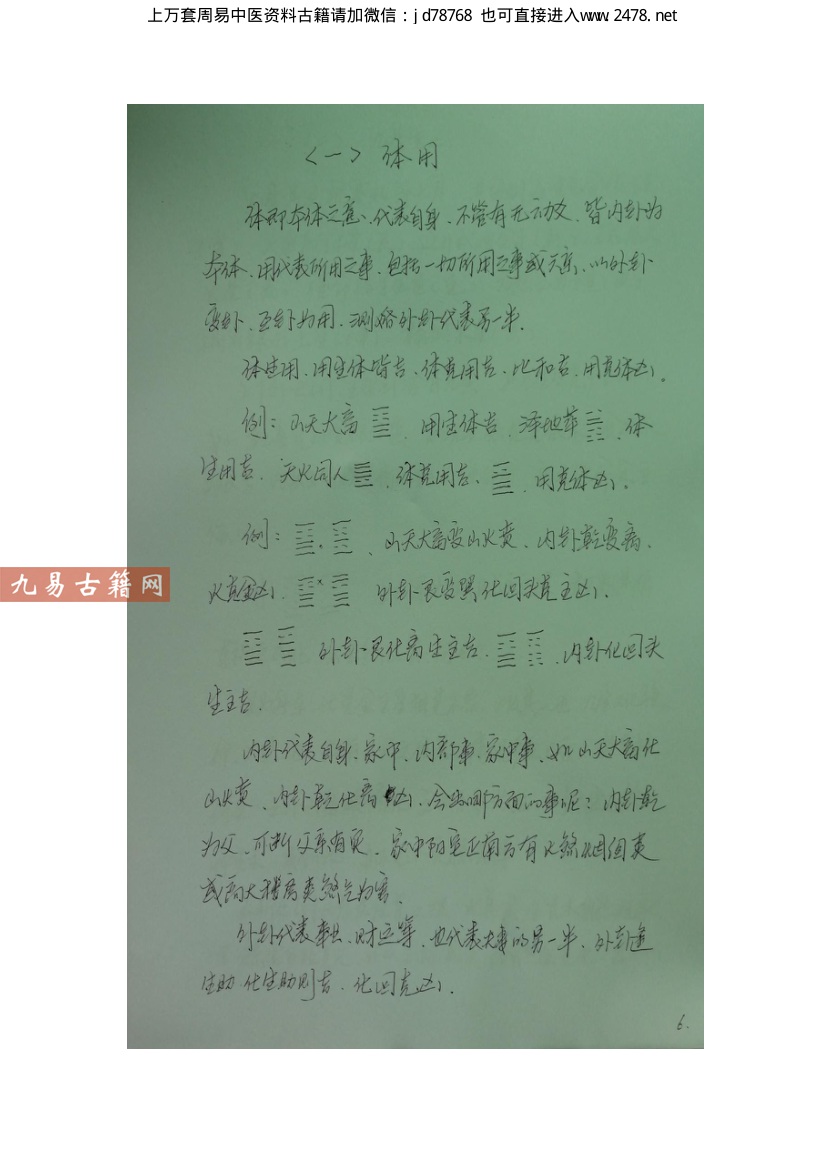 上万套周易中医资料古籍请加微信：jd78768 也可直接进入www.2478.net
<一> 体用
体即本体之意、代表自身、不管有无动爻、皆内卦为
本体、用代表所用之事、包括一切所用之事或、以外卦
变卦、互卦为用、测婚外卦代表另一半.
体生用、用生体皆吉、体克用吉、比和吉、用克体凶。
例：山天大畜 、用生体吉、泽地萃 、体
生用吉、天火同人 、体克用吉、 、用克体凶.
例： 、山天大畜变山火贲、内卦乾变离、
火克金凶、 外卦艮变巽化回头克主凶.
外卦艮化离生主吉. 、内卦化回头
生主吉.
内卦代表自身、家中、内部事、家中事、如山天大畜化
山火贲、内卦乾化离 凶、会出哪方面的事呢？内卦乾
为父、可断父亲有灾、家中阳宅正南方有火煞烟囱类
或高大楼房类煞气为害.
外卦代表、财运等、也代表大事的另一半、外卦逢
生助 化生助则吉、化回克凶.
6.
九易古籍网